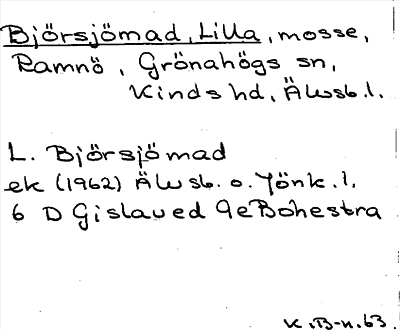 Björsjömad, Lilla, mosse,
Ramnö, Grönahögs sn,
Kinds hd, Älvsb. l.
L. Björsjömad
ek (1962) Älvsb. o. Jönk. l.
6 D Gislaved 9e Bohestra
K. B-n. 63